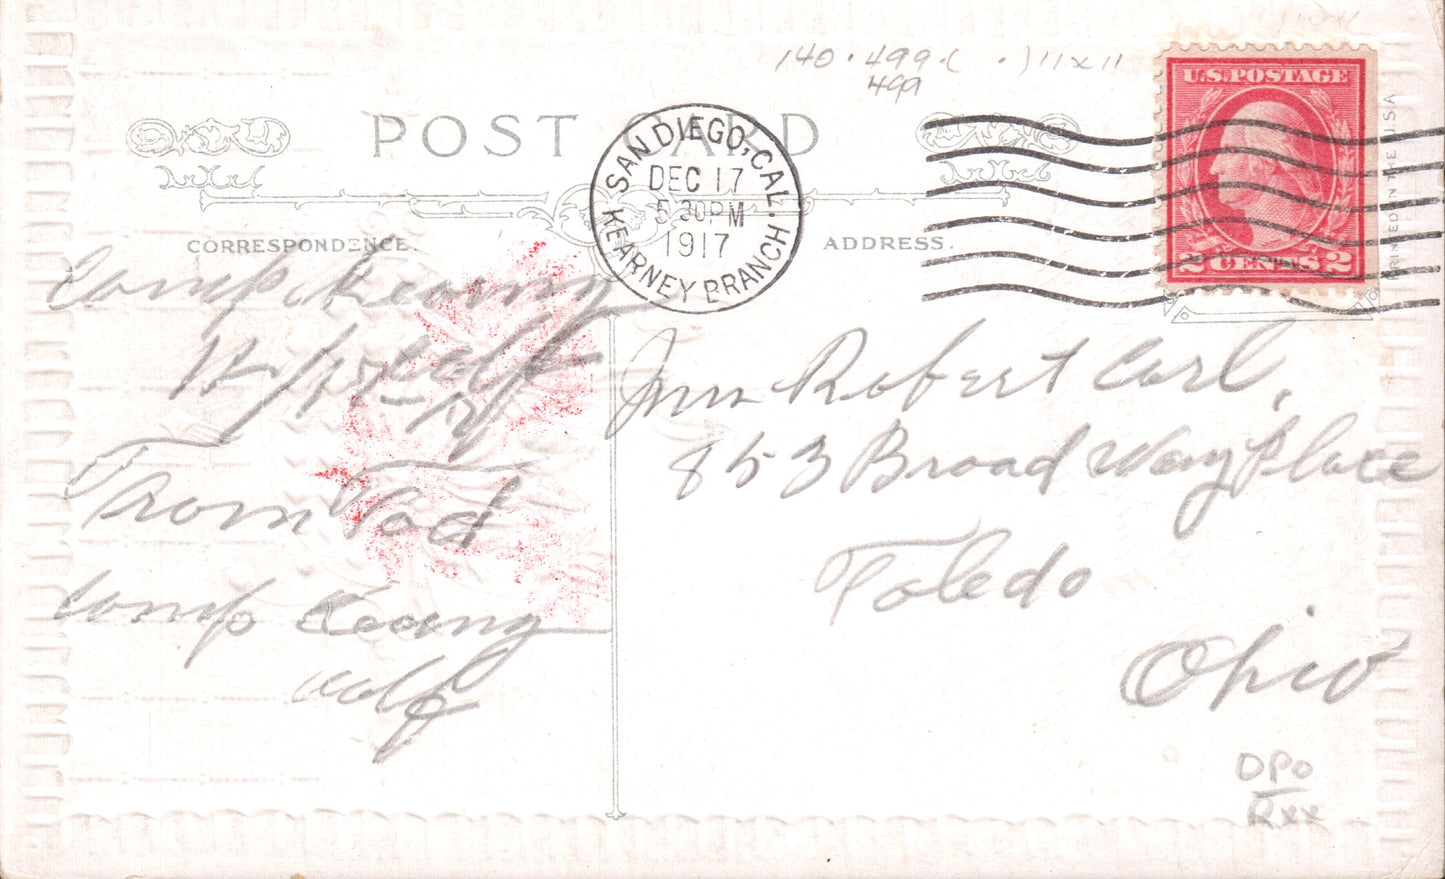 140 · 499 · ( · ) 11 x 11
499
U.S. POSTAGE
2 CENTS 2
POST CARD
SAN DIEGO, CAL.
DEC 17
5 30 PM
1917
KEARNEY BRANCH
CORRESPONDENCE.
ADDRESS.
PRINTED IN THE USA
Camp Kearny
12/17
From Tod
Camp Kearny
Calif
Robert Carl,
853 Broad Way Place
Toledo
Ohio
DPO
Rxx